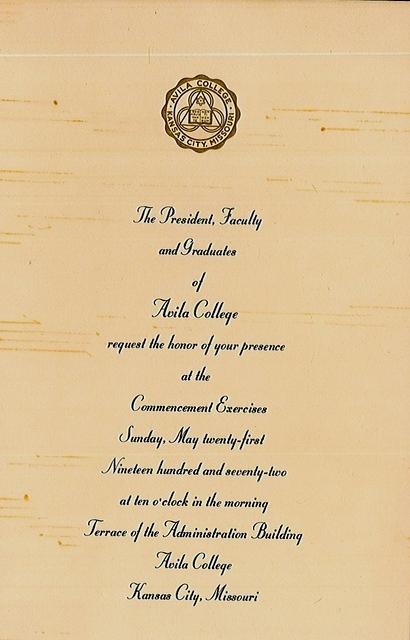 AVILA COLLEGE
KANSAS CITY, MISSOURI
The President, Faculty
and Graduates
of
Avila College
request the honor of your presence
at the
Commencement Exercises
Sunday, May twenty-first
Nineteen hundred and seventy-two
at ten o'clock in the morning
Terrace of the Administration Building
Avila College
Kansas City, Missouri